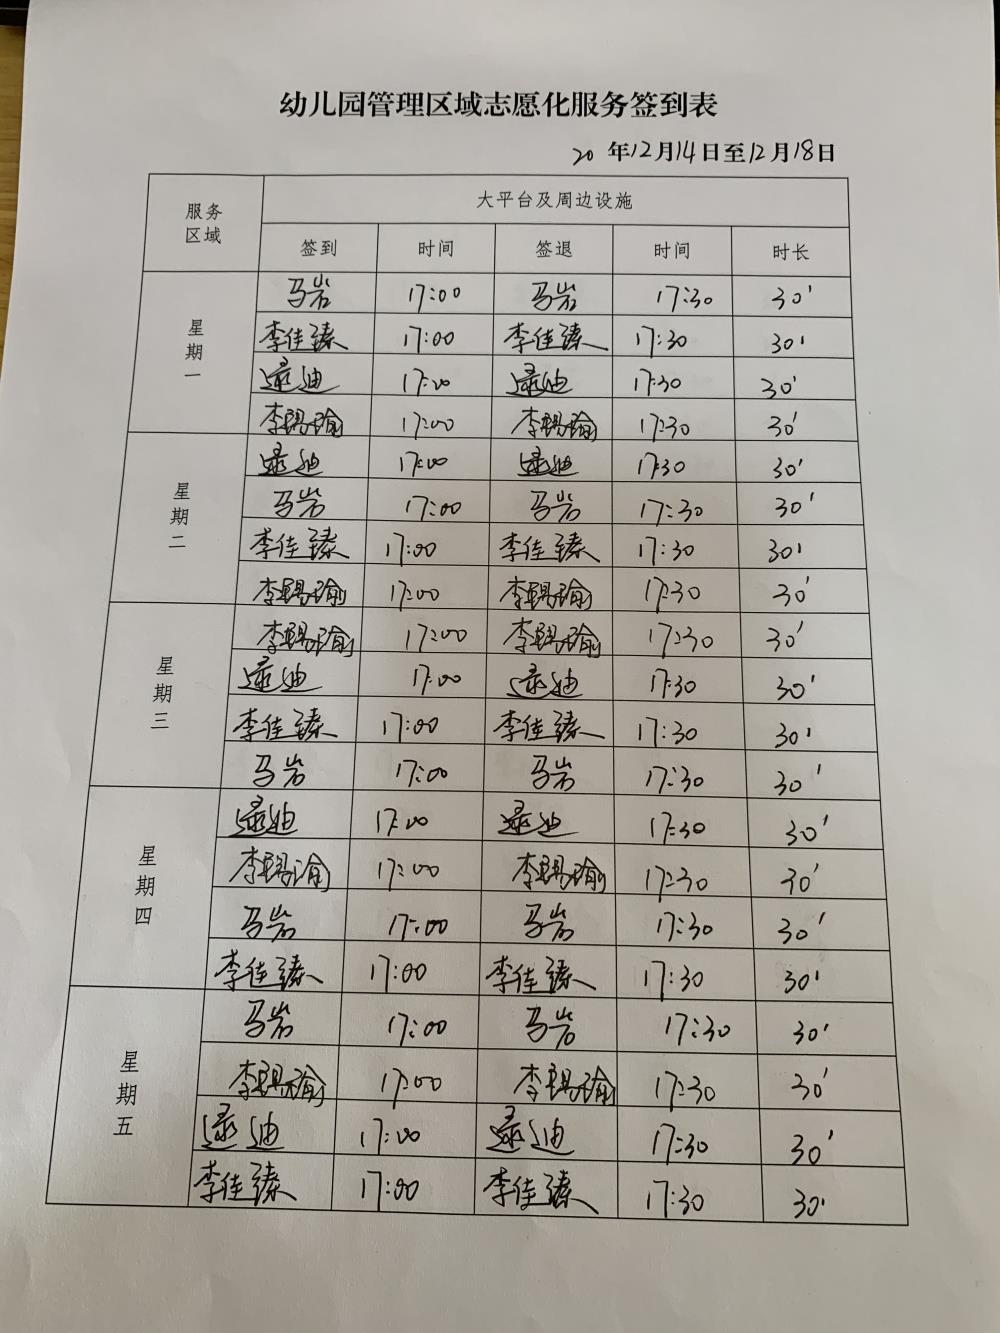 幼儿园管理区域志愿化服务签到表
20 年12月14日至12月18日
服务区域 大平台及周边设施
签到 时间 签退 时间 时长
星期一 马岩 17:00 马岩 17:30 30'
李佳臻 17:00 李佳臻 17:30 30'
逯迪 17:00 逯迪 17:30 30'
17:00 17:30 30'
星期二 逯迪 17:00 逯迪 17:30 30'
马岩 17:00 马岩 17:30 30'
李佳臻 17:00 李佳臻 17:30 30'
17:00 17:30 30'
星期三 17:00 17:30 30'
逯迪 17:00 逯迪 17:30 30'
李佳臻 17:00 李佳臻 17:30 30'
马岩 17:00 马岩 17:30 30'
星期四 逯迪 17:00 逯迪 17:30 30'
17:00 17:30 30'
马岩 17:00 马岩 17:30 30'
李佳臻 17:00 李佳臻 17:30 30'
星期五 马岩 17:00 马岩 17:30 30'
17:00 17:30 30'
逯迪 17:00 逯迪 17:30 30'
李佳臻 17:00 李佳臻 17:30 30'